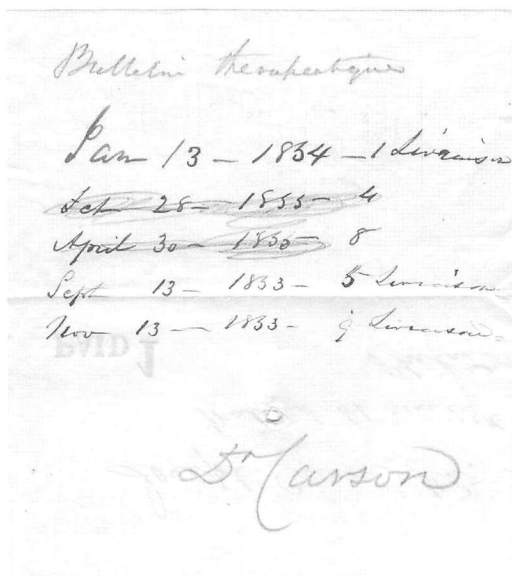 Bulletin therapeutique
Jan 13 — 1834 — 1 Livraison
Feb 28 — 1835 — 4
April 30 — 1835 — 8
Sept 13 — 1833 — 5 Livraison
Nov 13 — 1833 — 9 Livraison
PAID 1
Dr Carson